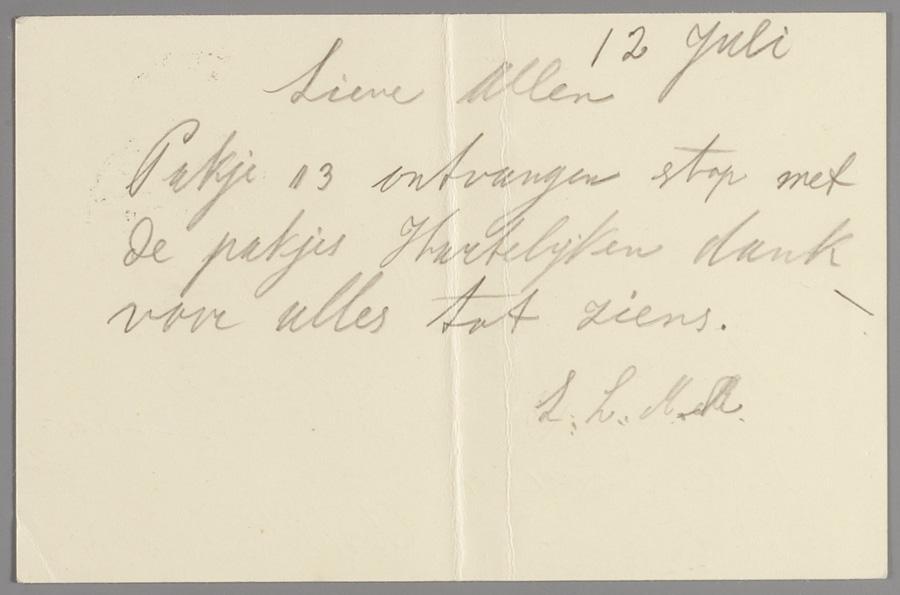 12 Juli
Lieve Allen
Pakje 113 ontvangen stop met
de pakjes Hartelijken dank
voor alles tot ziens.
L. L. M.